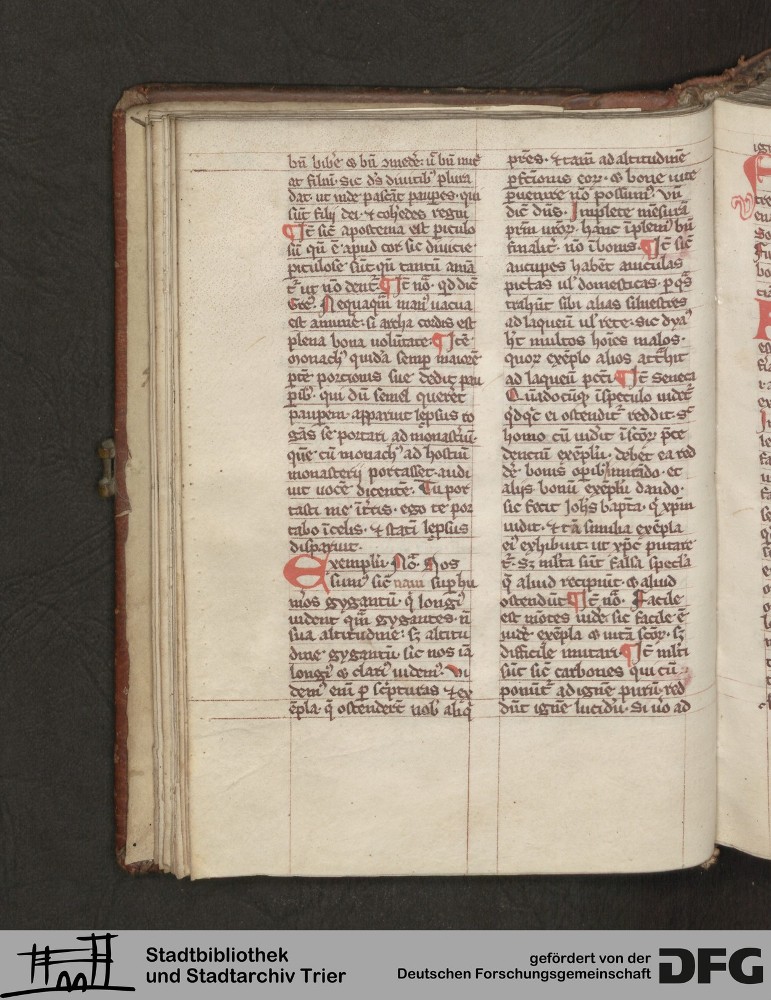 bn̄ bibē ⁊ bn̄ ꝯmedē: n̄ bn̄ nut
at filiū. sic dꝰs diuitibꝰ plura
dat. ut inde pascāt paupes. qui
sūt filij dei. ⁊ cohedes regni
¶ Itē sic̄ apostema est piculo
sū qn̄ ē apud cor. sic diuicie
piculose sūt qn̄ tantū amā
t᷑ ut nō dent᷑. ¶ Itē nō. qd dic̄
Gre. Nequaqm̄ manꝰ uacua
est a munē. si archa cordis est
plena bona volūtate. ¶ Itē
monachꝰ quidā semp maiorē
ptē portionis sue dedit pau
pibꝰ. qui dū semel querēt
paupem. apparuit lepsus ro
gās se portari ad monastiū.
quē cū monachꝰ ad hostiū
monasterij portasset. audi
uit uocē dicentē. Tu por
tasti me ī tris. ego te por
tabo ī celis. ⁊ statī lepsus
disparuit.
Exemplū. Nō. Nos
sumꝰ sic̄ nani sup hu
mos gygantū. q̄ longiꝰ
uident qm̄ gygantes. n̄
sua altitudine: sꝫ altitu
dine gygantū. sic nos iā
longiꝰ ⁊ clariꝰ uidemꝰ. Vi
demꝰ enī p scpturas ⁊ ex
ēpla. q̄ ostenderēt nob̄ aliq̄
pres. ⁊ tam̄ ad altitudinē
pfctionis eor. ⁊ bone uite
puenire nō possumꝰ. Vn̄
dic̄ dn̄s. Implete mēsurā
prm̄ uror. hanc ī plem̄ bn̄
finalit᷑. nō ī bonis. ¶ Itē sic̄
aucupes habēt auiculas
pictas ul̓ domesticas. p qꝰs
trahūt sibi alias siluestres
ad laqueū ul̓ rete. sic dyaꝰ
ht̄ multos hoīes malos.
quor exēplo alios attrhit
ad laqueū pcti. ¶ Itē Seneca
Quadocūq ī speculo uidet᷑
qdqc ei ostendit᷑ reddit. sꝫ
homo cū uidit ī scōr pte
dentiū exēplū. debet ea red
dē. bonis opibꝰ imitādo. et
alijs bonū exēplū dando.
sic fecit Iohs bapta. q xpm
uidit. ⁊ tā similia exēpla
eiꝰ exhibuit. ut xpc̄ putare
t᷑. Sꝫ mlta sūt falsa specla
q̄ aliud recipiūt. ⁊ aliud
ostendūt. ¶ Itē nō. Facile
est mōtes uidē. sic facile ē
uidē exēpla ⁊ uitā scōr. sꝫ
difficile imitari. ¶ Itē mlti
sūt sic̄ carbones qui cū
ponūt᷑ ad ignē purū. red
dūt ignē lucidū. Si uo ad
Stadtbibliothek
und Stadtarchiv Trier
gefördert von der
Deutschen Forschungsgemeinschaft
DFG